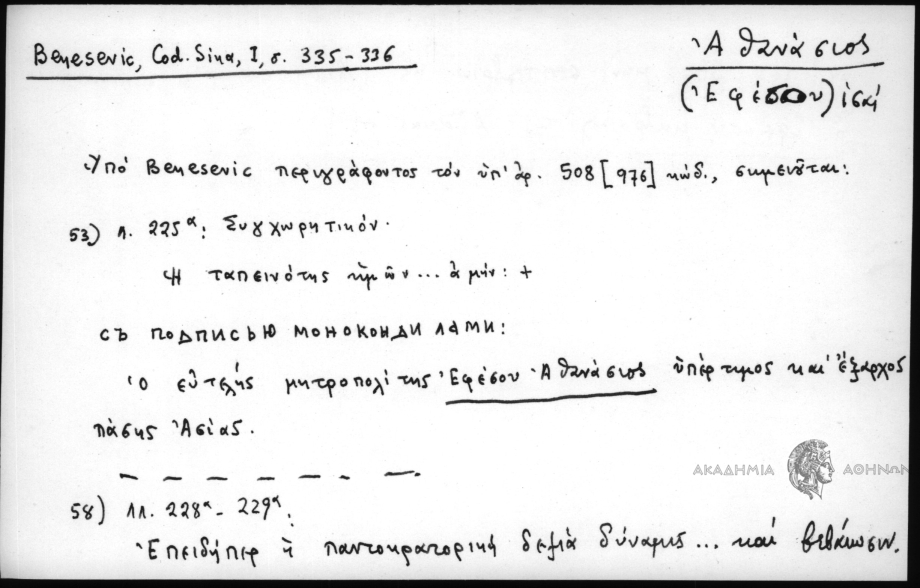 Benesevic, Cod. Sina, I, σ. 335-336
Ἀθανάσιος
(Ἐφέσου)
Ὑπό Benesevic περιγράφοντος τόν ὑπ' ἀρ. 508 [976] κώδ., σημειοῦται:
53) л. 225α: Συγχωρητικόν.
Ἡ ταπεινότης ἡμῶν... ἀμήν: +
съ подписью монокондилами:
Ὁ εὐτελής μητροπολίτης Ἐφέσου Ἀθανάσιος ὑπέρτιμος καί ἔξαρχος
πάσης Ἀσίας.
58) лл. 228α - 229α:
Ἐπειδήπερ ἡ παντοκρατορική δεξιά δύναμις... καί βεβαίωσιν.
ΑΚΑΔΗΜΙΑ ΑΘΗΝΩΝ